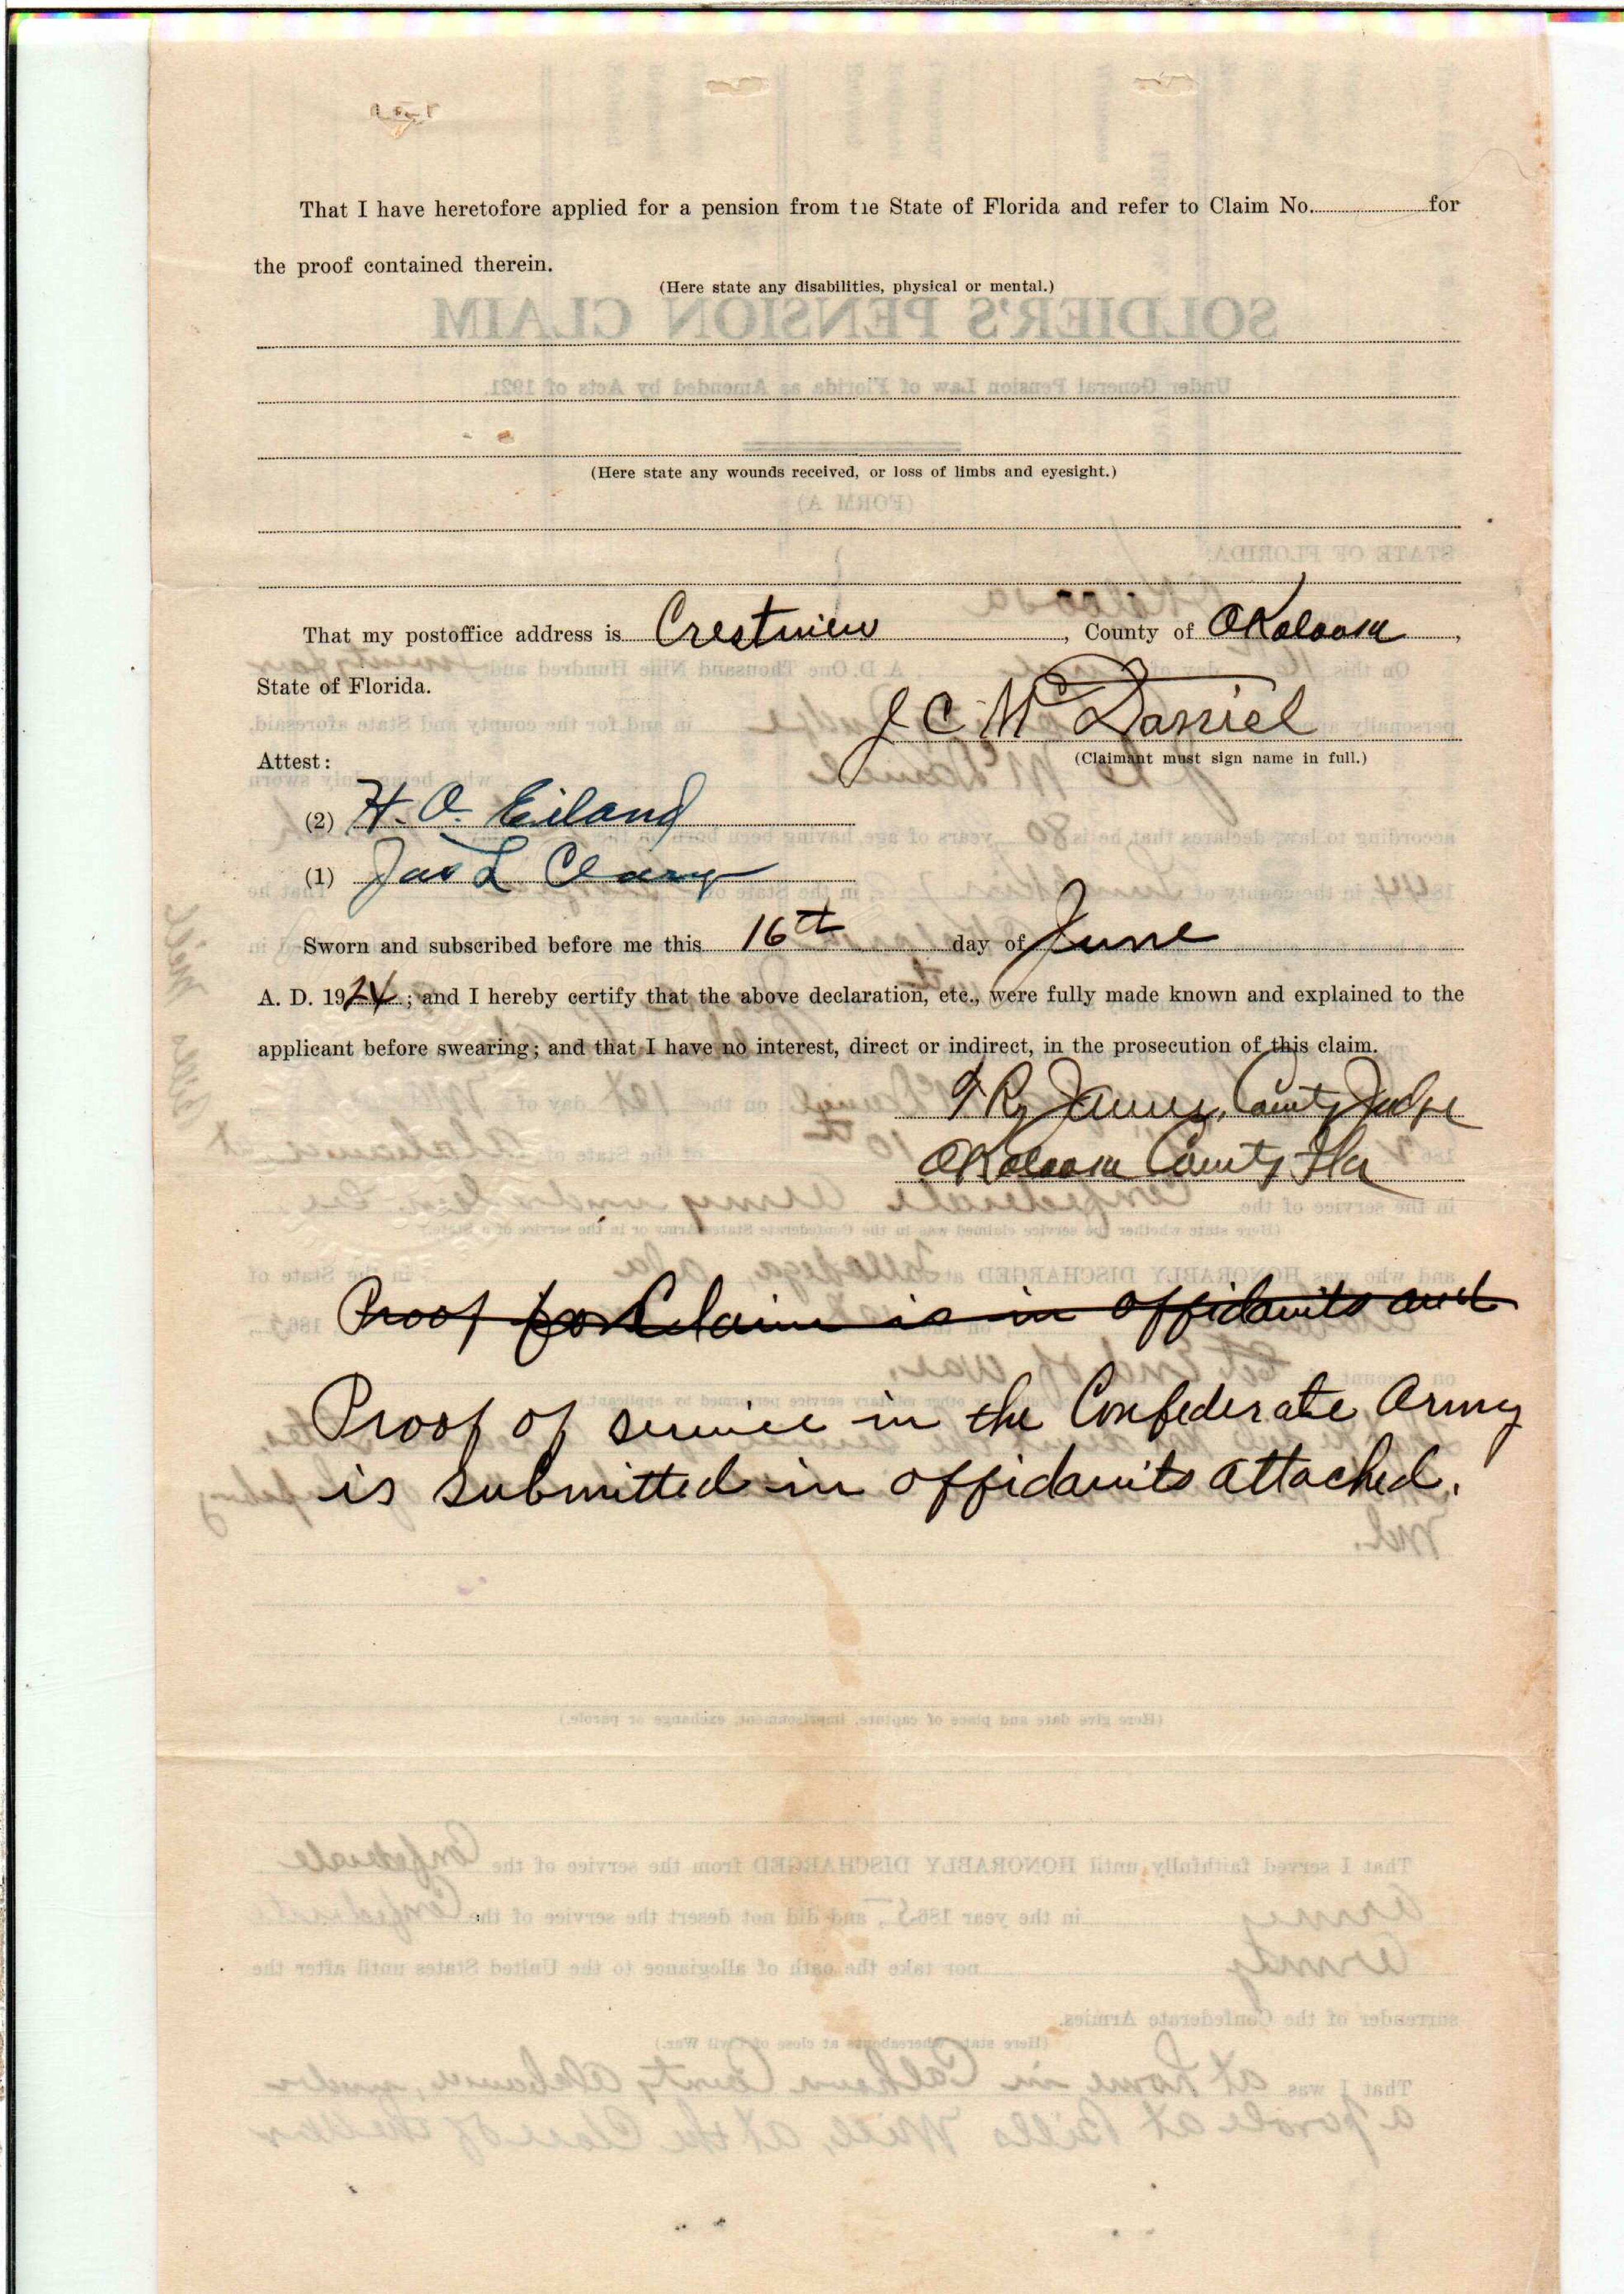 That I have heretofore applied for a pension from tıe State of Florida and refer to Claim No. for
the proof contained therein.
(Here state any disabilities, physical or mental.)
(Here state any wounds received, or loss of limbs and eyesight.)
That my postoffice address is Crestview, County of Okaloosa,
State of Florida.
J C McDaniel
Attest: (Claimant must sign name in full.)
(2) H. O. Eiland
(1) Jas L Clary
Sworn and subscribed before me this 16th day of June
A. D. 1924; and I hereby certify that the above declaration, etc., were fully made known and explained to the
applicant before swearing; and that I have no interest, direct or indirect, in the prosecution of this claim.
County Judge
Okaloosa County Fla
Proof for Claim is in affidavits and
Proof of service in the Confederate Army
is submitted in affidavits attached.